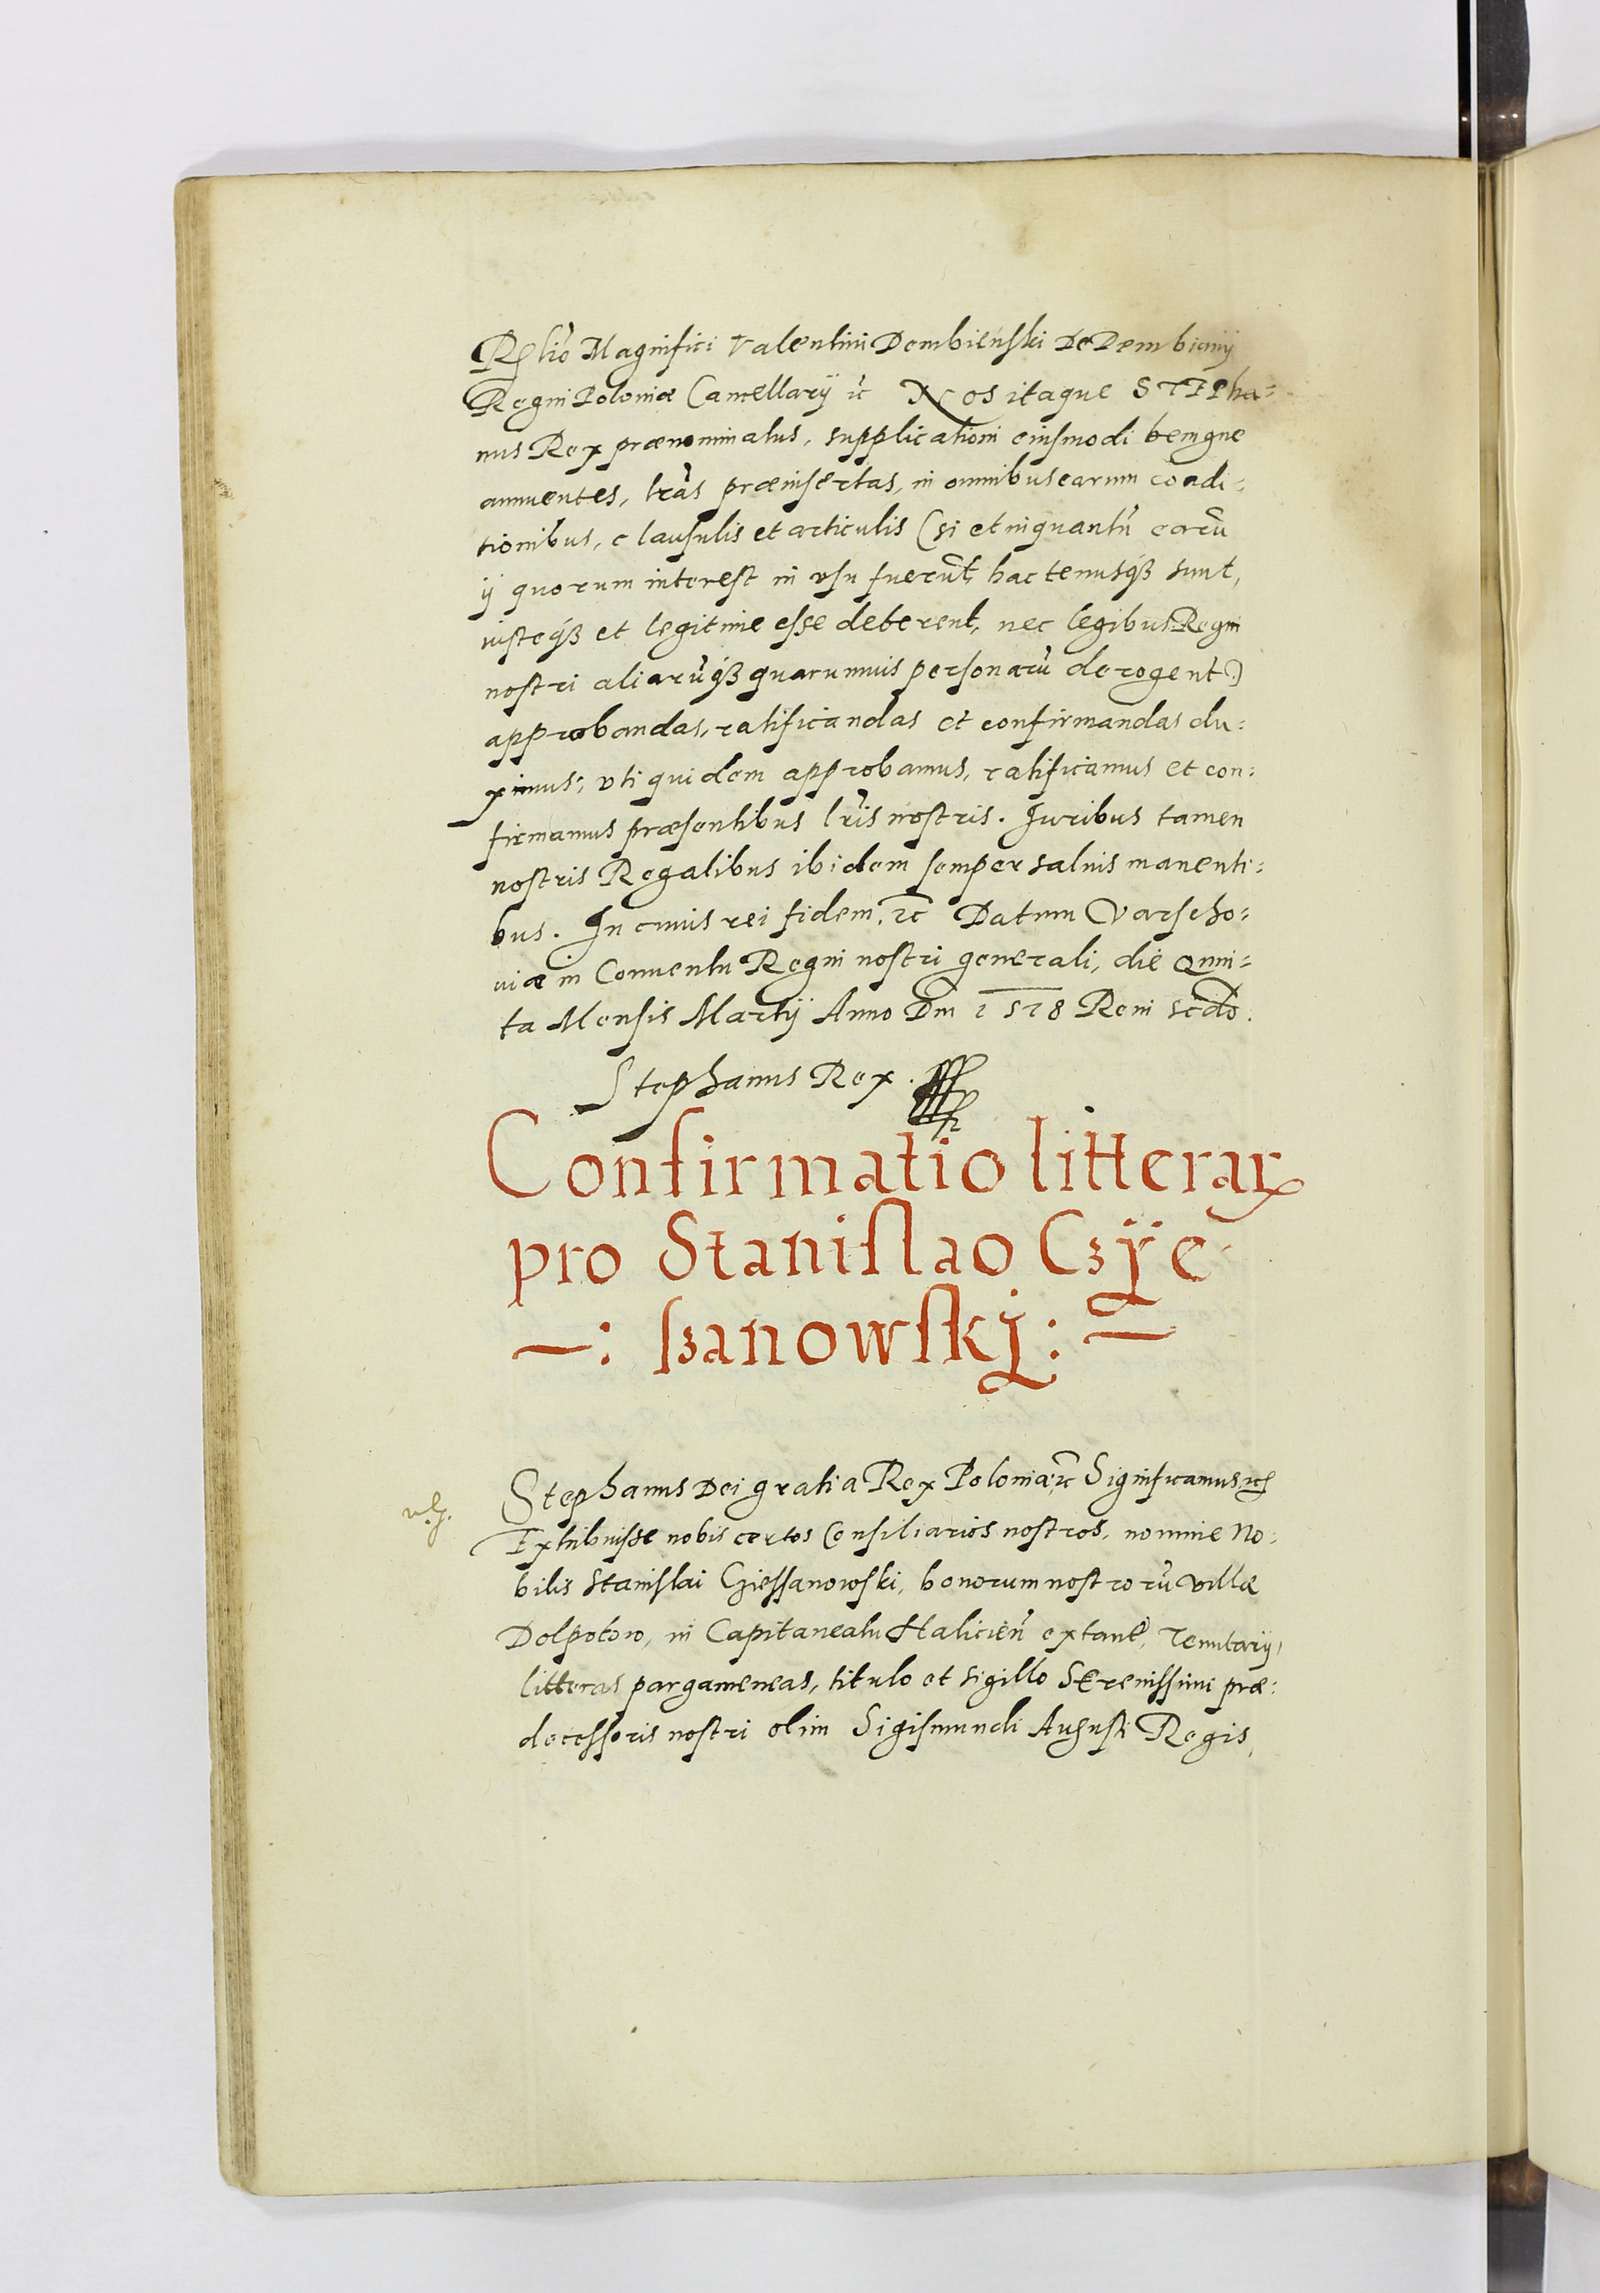 Relio Magnifici Valentini Dembieński De Dembiany
Regni Poloniæ Cancellarij ꝛc Nos itaque STEPha=
nus Rex prænominatus, supplicationi eiusmodi benigne
annuentes, lrãs præinsertas, in omnibus earum condi=
tionibus, clausulis et articulis (si et inquantũ earũ
ij quorum interest in vsu fuerũt, hactenusqꝫ sunt,
iusteqꝫ et legitime esse deberent, nec legibus Regni
nostri aliarũqꝫ quarumuis personarũ derogent)
approbandas, ratificandas et confirmandas du=
ximus; vti quidem approbamus, ratificamus et con=
firmamus præsentibus lris nostris. Iuribus tamen
nostris Regalibus ibidem semper saluis manenti=
bus. In cuius rei fidem, ꝛc Datum Varscho=
uiæ in Conuentu Regni nostri generali, die Quin=
ta Mensis Martij Anno Dni 1578 Reni scdo.
Stephanus Rex.
Confirmatio litterarꝝ
pro Stanislao Czÿe
—: sзanowskj: —
Stephanus Dei gratia Rex Poloniæ ꝛc Significamus ꝛc
Exhibuisse nobis certos Consiliarios nostros, nomine No=
bilis Stanislai Cziessanowski, bonorum nostrorũ villæ
Dolpotow, in Capitaneatu Halicieñ extañ, Tenutarij,
litteras pargameneas, titulo et sigillo Serenissimi præ=
decessoris nostri olim Sigismundi Augusti Regis,